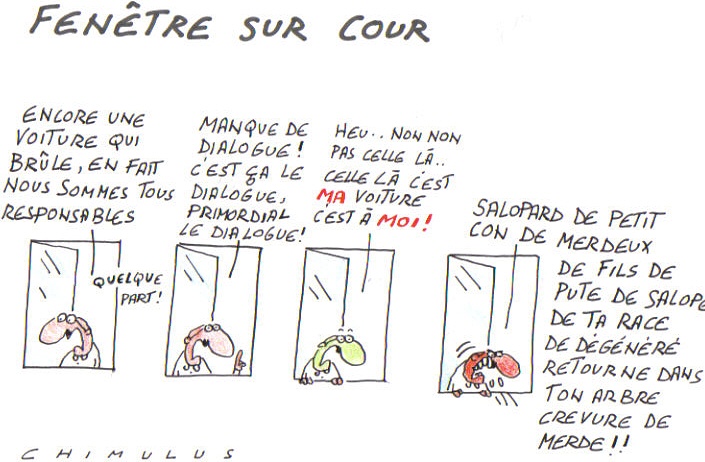 FENÊTRE SUR COUR
ENCORE UNE
VOITURE QUI
BRÛLE, EN FAIT
NOUS SOMMES TOUS
RESPONSABLES
QUELQUE
PART!
MANQUE DE
DIALOGUE!
C'EST ÇA LE
DIALOGUE,
PRIMORDIAL
LE DIALOGUE!
HEU.. NON NON
PAS CELLE LÀ..
CELLE LÀ C'EST
MA VOITURE
C'EST À MOI!
SALOPARD DE PETIT
CON DE MERDEUX
DE FILS DE
PUTE DE SALOPE
DE TA RACE
DE DÉGÉNÉRÉ
RETOURNE DANS
TON ARBRE
CREVURE DE
MERDE!!
CHIMULUS